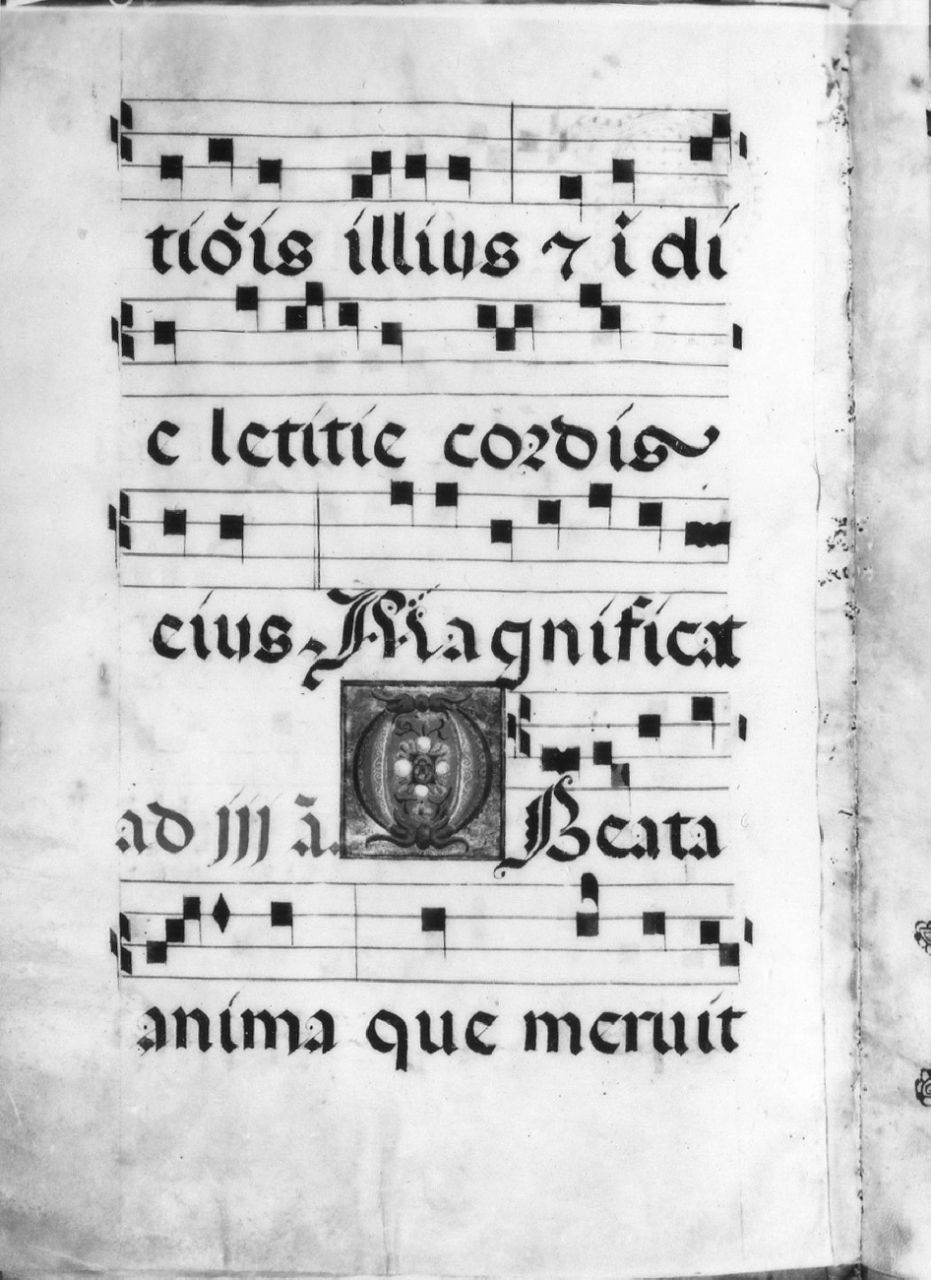 tiōis illius ⁊ ī di
e letitie cordis
eius Magnificat
ad iij ā. O Beata
anima que meruit